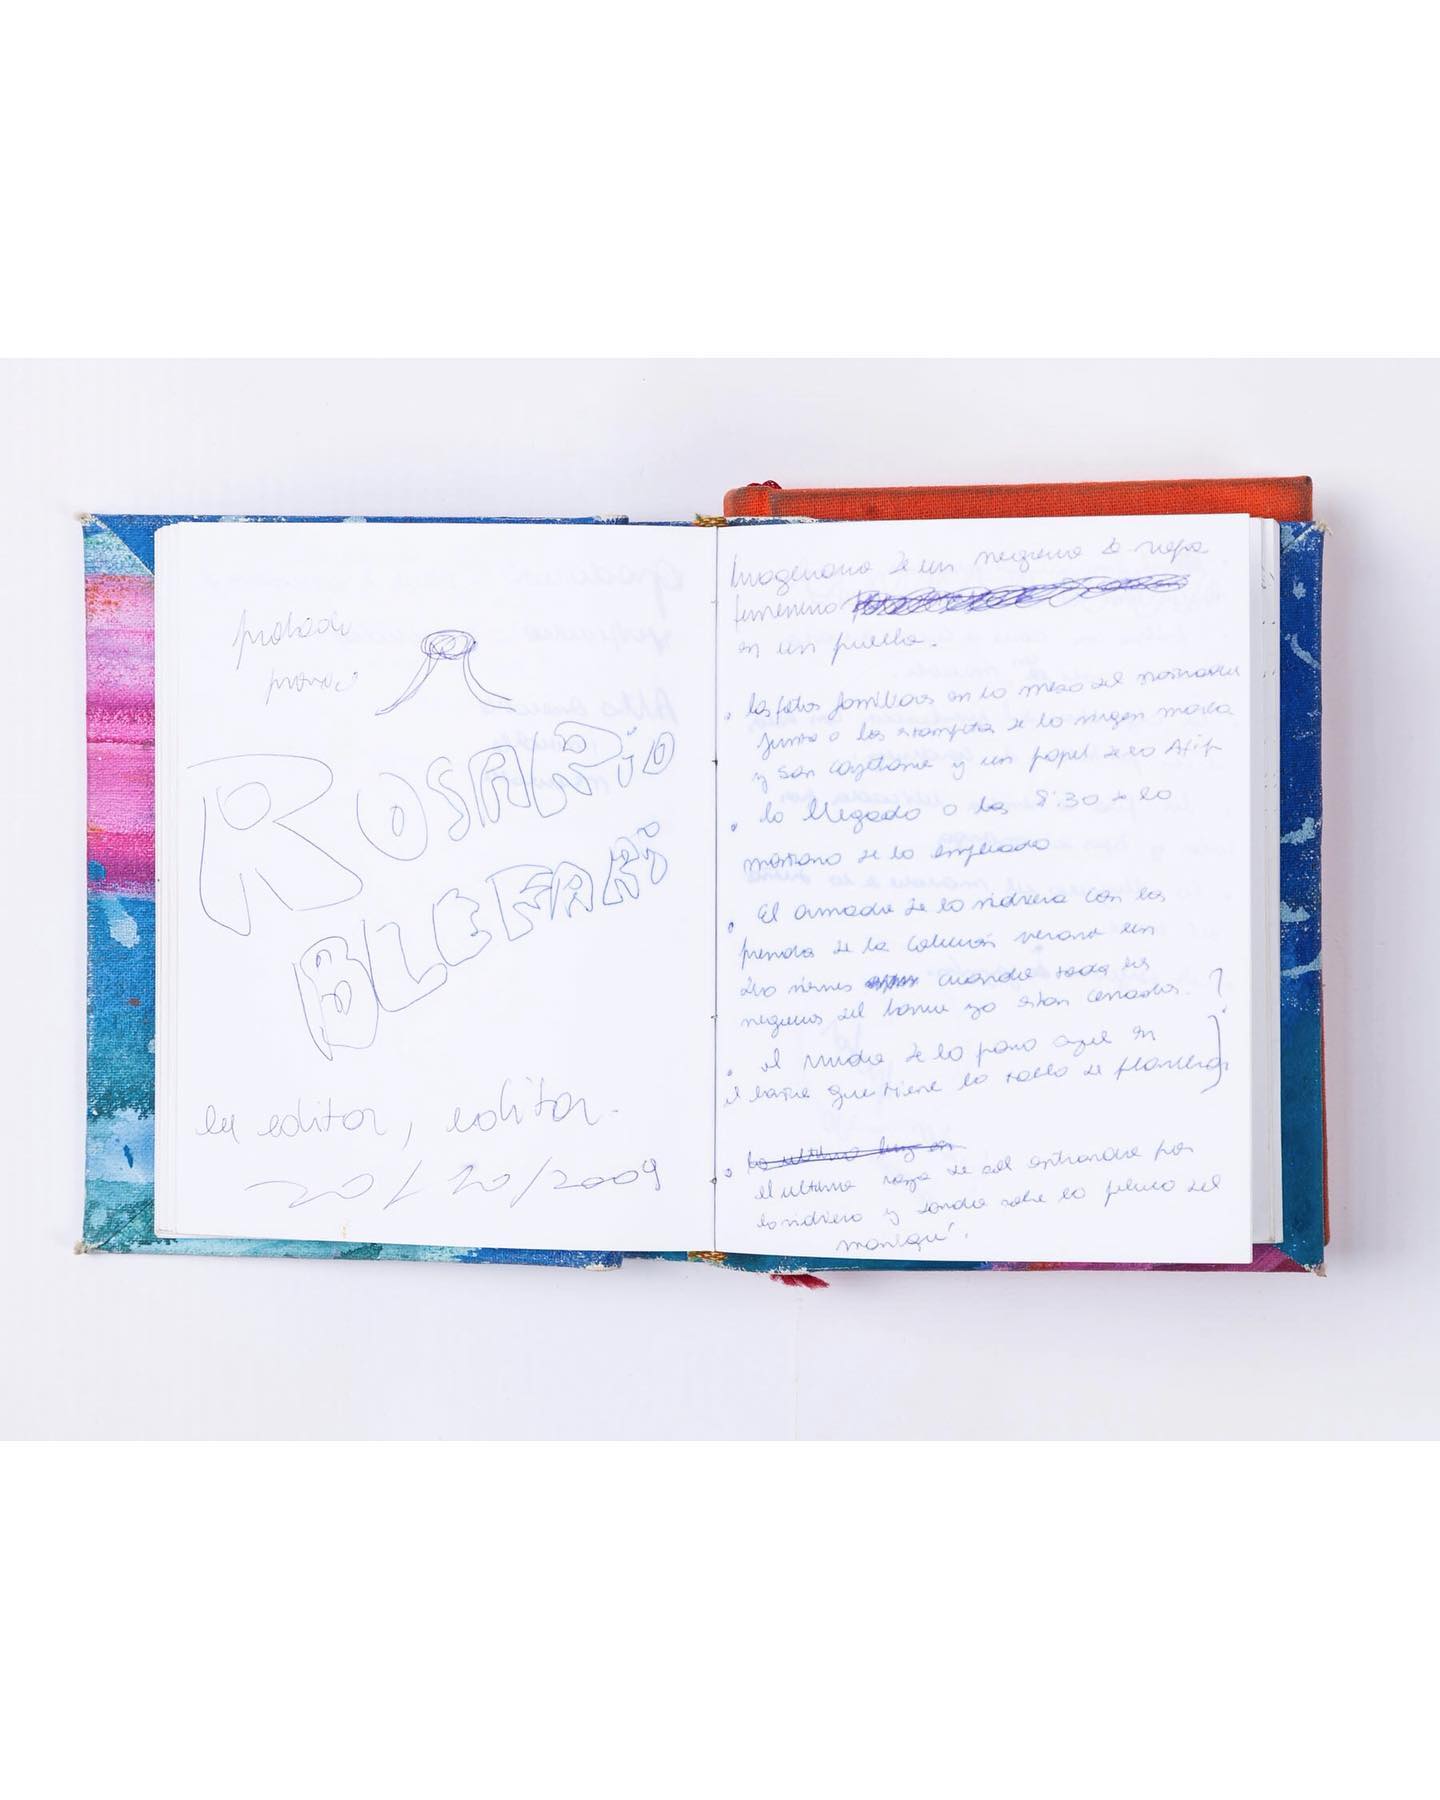 ROSARiO
BLEFARi
editor, editor.
20/10/2009
Imaginario de un negocio de ropa
femenino
en un pueblo.
. las fotos familiares en la mesa del
junto a las estampitas de la virgen maría
y san cayetano y un papel de la Afip
. la llegada a las 8:30 de la
mañana de la empleada
. El armado de la vidriera con las
prendas de la colección verano un
viernes cuando todos los
negocios del barrio ya estan cerrados. ?
. el ruido de la pava azul en
el que tiene la
. La ultima luz en
el ultimo rayo de sol entrando por
la vidriera y dando sobre la peluca del
maniquí.